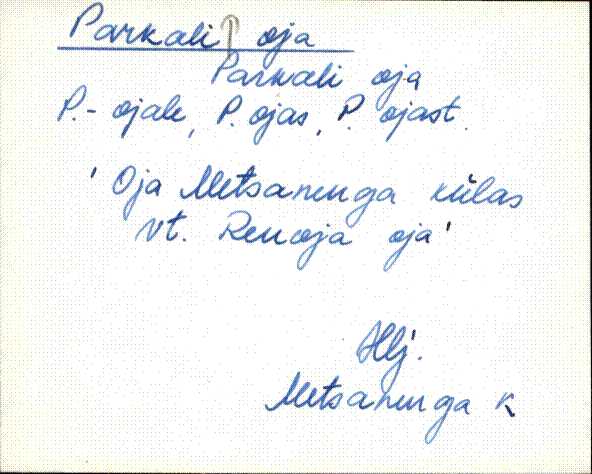 Parkali oja
Parkali oja
P.- ojale, P. ojas, P. ojast.
' Oja Metsanurga külas
vt. Reuoja oja '
Hlj.
Metsanurga k